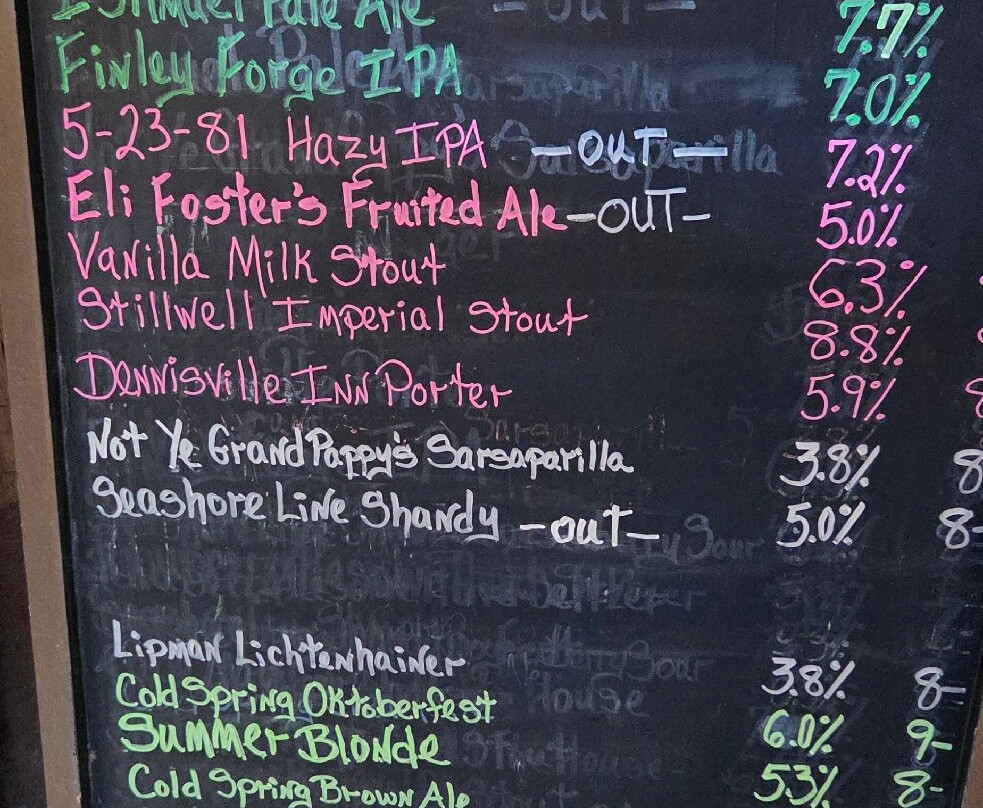 Ishmael Pale Ale -OUT- 7.7%
Finley Forge IPA 7.0%
5-23-81 Hazy IPA -OUT- 7.2%
Eli Foster's Fruited Ale -OUT- 5.0%
Vanilla Milk Stout 6.3%
Stillwell Imperial Stout 8.8%
Dennisville Inn Porter 5.9%
Not Ye Grand Pappy's Sarsaparilla 3.8% 8
Seashore Line Shandy -out- 5.0% 8-
Lipman Lichtenhainer 3.8% 8-
Cold Spring Oktoberfest 6.0% 9-
Summer Blonde 53% 8-
Cold Spring Brown Ale